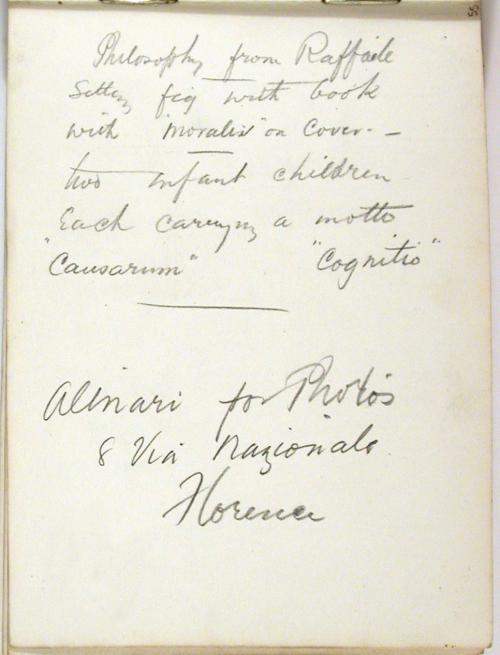 55
Philosophy from Raffaele
Sitting fig with book
with "Moralis" on Cover. -
two infant children
Each carrying a motto
"Causarum" "Cognitio"
Alinari for Photos
8 Via Nazionale
Florence